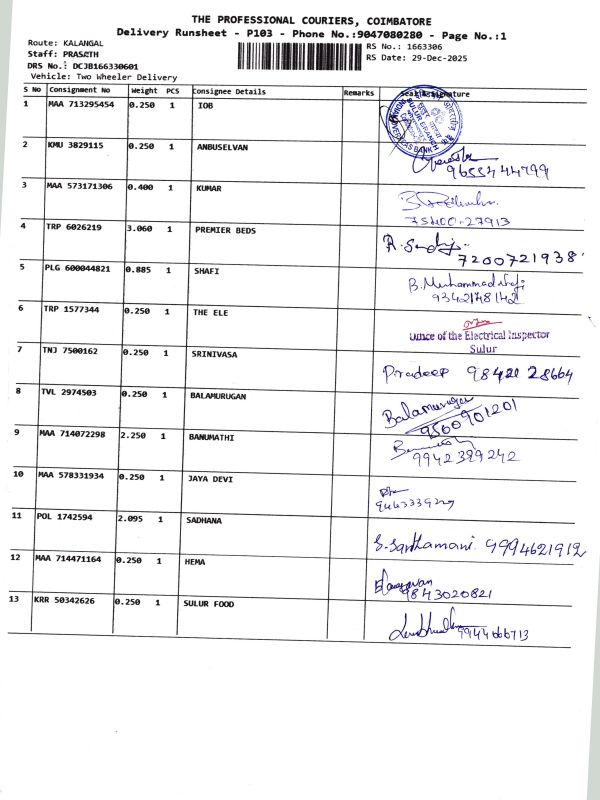 THE PROFESSIONAL COURIERS, COIMBATORE
Delivery Runsheet - P103 - Phone No.:9047080280 - Page No.:1
Route: KALANGAL
Staff: PRASATH
DRS No.: DCJB166330601
Vehicle: Two Wheeler Delivery
RS No.: 1663306
RS Date: 29-Dec-2025
S No Consignment No Weight PCS Consignee Details Remarks Seal&Signature
1 MAA 713295454 0.250 1 IOB
SULUR BRANCH
2 KMU 3829115 0.250 1 ANBUSELVAN
9655444799
3 MAA 573171306 0.400 1 KUMAR
75400-27913
4 TRP 6026219 3.060 1 PREMIER BEDS
7200721938
5 PLG 600044821 0.885 1 SHAFI
B. Muhammad Shafi
9342178142
6 TRP 1577344 0.250 1 THE ELE
Office of the Electrical Inspector
Sulur
7 TNJ 7500162 0.250 1 SRINIVASA
Pradeep 98421 28664
8 TVL 2974503 0.250 1 BALAMURUGAN
Balamurugan
9500901201
9 MAA 714072298 2.250 1 BANUMATHI
9942389242
10 MAA 578331934 0.250 1 JAYA DEVI
11 POL 1742594 2.095 1 SADHANA
S. Santhamani. 9994621912
12 MAA 714471164 0.250 1 HEMA
9843020821
13 KRR 50342626 0.250 1 SULUR FOOD
9944666713